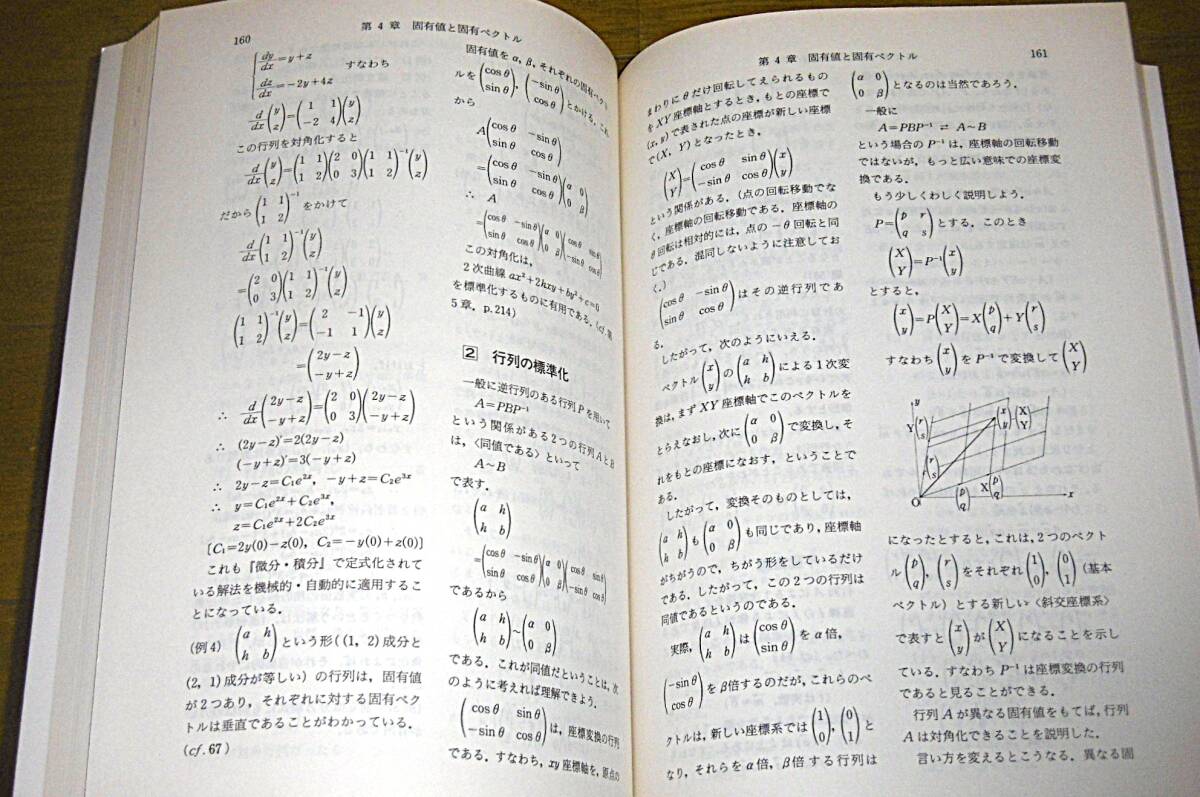 160
第 4 章 固有値と固有ベクトル
dy/dx=y+z すなわち
dz/dx=−2y+4z
d/dx(y z)=(1 1 −2 4)(y z)
この行列を対角化すると
d/dx(y z)=(1 1 1 2)(2 0 0 3)(1 1 1 2)⁻¹(y z)
だから(1 1 1 2)⁻¹をかけて
d/dx(1 1 1 2)⁻¹(y z)
=(2 0 0 3)(1 1 1 2)⁻¹(y z)
(1 1 1 2)⁻¹(y z)=(2 −1 −1 1)(y z)
=(2y−z −y+z)
∴ d/dx(2y−z −y+z)=(2 0 0 3)(2y−z −y+z)
∴ (2y−z)′=2(2y−z)
(−y+z)′=3(−y+z)
∴ 2y−z=C₁e²ˣ, −y+z=C₂e³ˣ
∴ y=C₁e²ˣ+C₂e³ˣ,
z=C₁e²ˣ+2C₂e³ˣ
[C₁=2y(0)−z(0), C₂=−y(0)+z(0)]
これも『微分・積分』で定式化されて
いる解法を機械的・自動的に適用するこ
とになっている.
(例4) (a h h b)という形((1, 2)成分と
(2, 1)成分が等しい)の行列は, 固有値
が2つあり, それぞれに対する固有ベク
トルは垂直であることがわかっている.
(cf. 67)
固有値を α, β, それぞれの固有ベクト
ルを(cos θ sin θ), (−sin θ cos θ)とかける. これ
から
A(cos θ −sin θ sin θ cos θ)
=(cos θ −sin θ sin θ cos θ)(α 0 0 β)
∴ A
=(cos θ −sin θ sin θ cos θ)(α 0 0 β)(cos θ sin θ −sin θ cos θ)
この対角化は,
2次曲線 ax²+2hxy+by²+c=0
を標準化するものに有用である. (cf. 第
5章. p.214)
2 行列の標準化
一般に逆行列のある行列 P を用いて
A=PBP⁻¹
という関係がある2つの行列 A と B
は, 〈同値である〉といって
A~B
で表す.
(a h h b)
=(cos θ −sin θ sin θ cos θ)(α 0 0 β)(cos θ sin θ −sin θ cos θ)
であるから
(a h h b)~(α 0 0 β)
である. これが同値だということは, 次
のように考えれば理解できよう.
(cos θ sin θ −sin θ cos θ)は, 座標変換の行列
である. すなわち, xy 座標軸を, 原点の
第 4 章 固有値と固有ベクトル
161
まわりに θ だけ回転してえられるもの
を XY 座標軸とするとき, もとの座標で
(x, y) で表された点の座標が新しい座標
で (X, Y) となったとき,
(X Y)=(cos θ sin θ −sin θ cos θ)(x y)
という関係がある. (点の回転移動でな
く, 座標軸の回転移動である. 座標軸の
θ 回転は相対的には, 点の −θ 回転と同
じである. 混同しないように注意してお
く.)
(cos θ −sin θ sin θ cos θ)はその逆行列であ
る.
したがって, 次のようにいえる.
ベクトル(x y)の(a h h b)による1次変
換は, まず XY 座標軸でこのベクトルを
とらえなおし, 次に(α 0 0 β)で変換し, そ
れをもとの座標になおす, ということで
ある.
したがって, 変換そのものとしては,
(a h h b)も(α 0 0 β)も同じであり, 座標軸
がちがうので, ちがう形をしているだけ
である. したがって, この2つの行列は
同値であるというのである.
実際, (a h h b)は(cos θ sin θ)を α 倍,
(−sin θ cos θ)を β 倍するのだが, これらのベ
クトルは, 新しい座標系では(1 0), (0 1)と
なり, それらを α 倍, β 倍する行列は
(α 0 0 β)となるのは当然であろう.
一般に
A=PBP⁻¹ ⇄ A~B
という場合の P⁻¹ は, 座標軸の回転移動
ではないが, もっと広い意味での座標変
換である.
もう少しくわしく説明しよう.
P=(p r q s)とする. このとき
(X Y)=P⁻¹(x y)
とすると,
(x y)=P(X Y)=X(p q)+Y(r s)
すなわち(x y)を P⁻¹ で変換して(X Y)
y
Y(r s)
(x y)·(X Y)
(r s)
O
(p q)
X(p q)
x
になったとすると, これは, 2つのベクト
ル(p q), (r s)をそれぞれ(1 0), (0 1)(基本
ベクトル)とする新しい〈斜交座標系〉
で表すと(x y)が(X Y)になることを示し
ている. すなわち P⁻¹ は座標変換の行列
であると見ることができる.
行列 A が異なる固有値をもてば, 行列
A は対角化できることを説明した.
言い方を変えるとこうなる. 異なる固